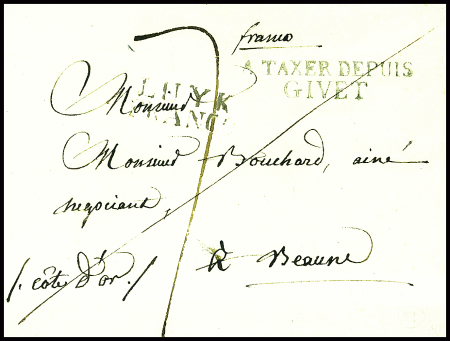 franco
A TAXER DEPUIS
GIVET
LUYK
FRANCO
Monsieur
Monsieur Bouchard, ainé
negociant,
/. côte d'or. /
à Beaune